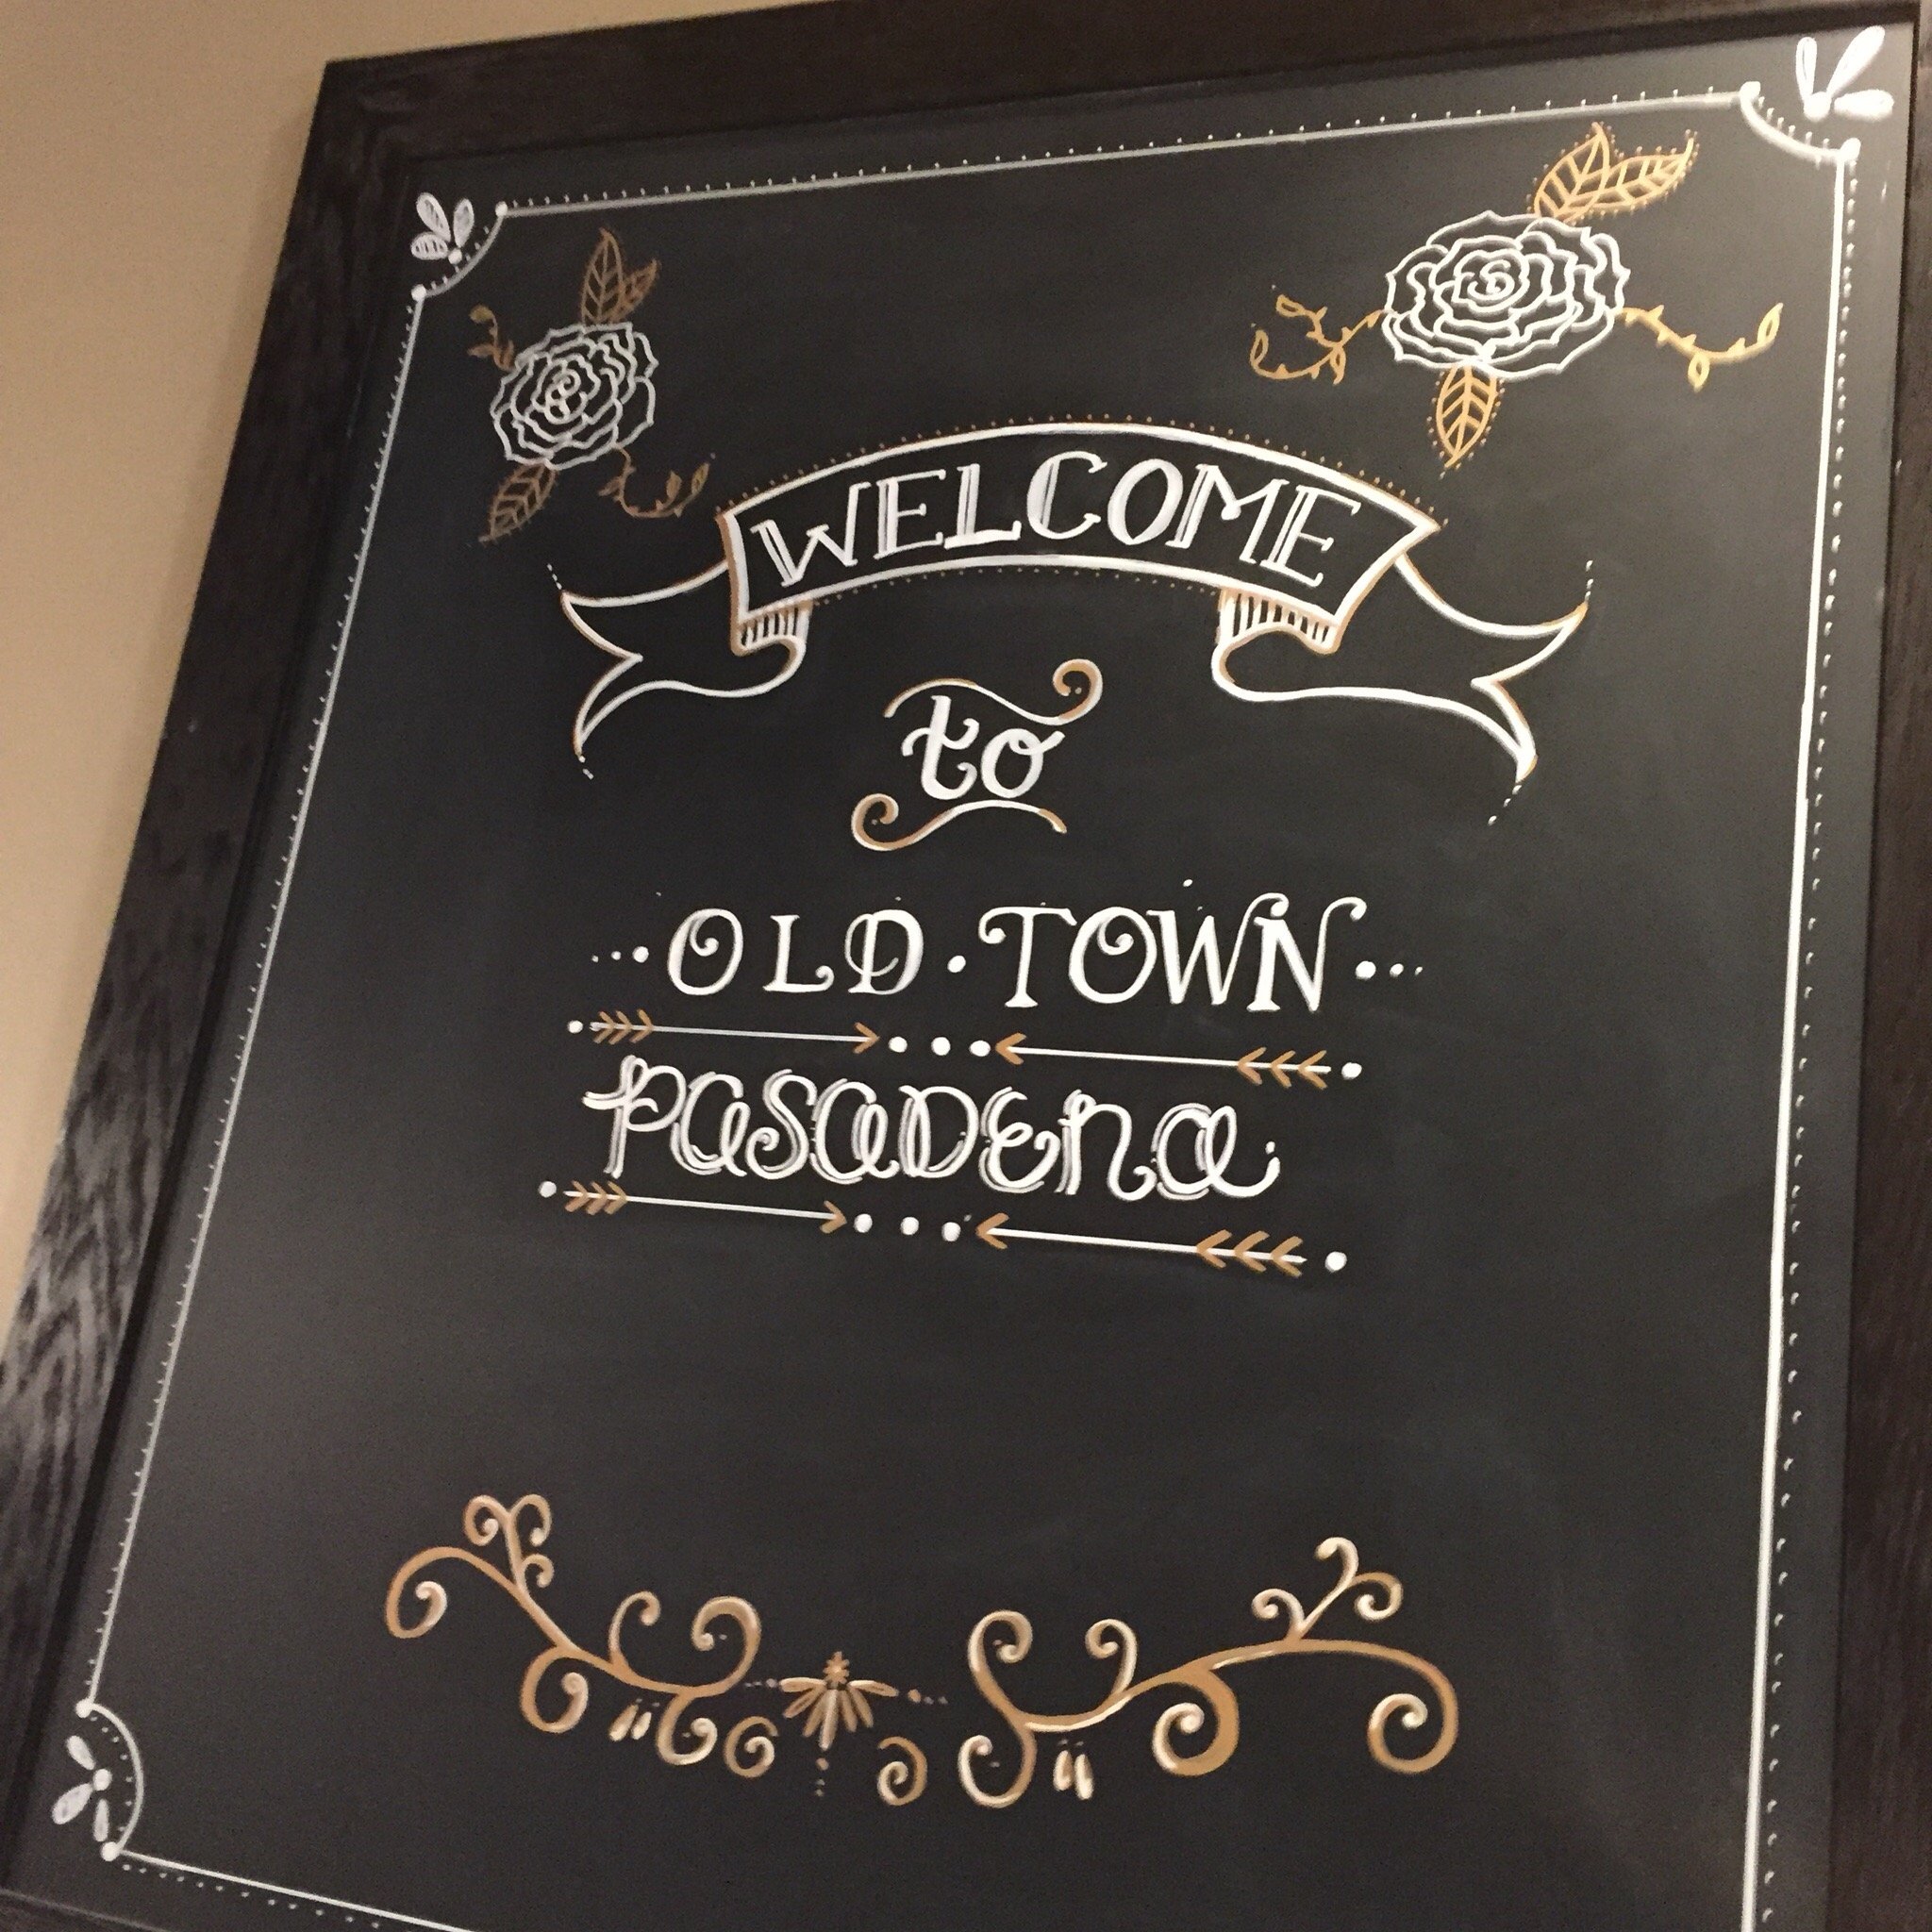 WELCOME
to
OLD·TOWN
PASADENA